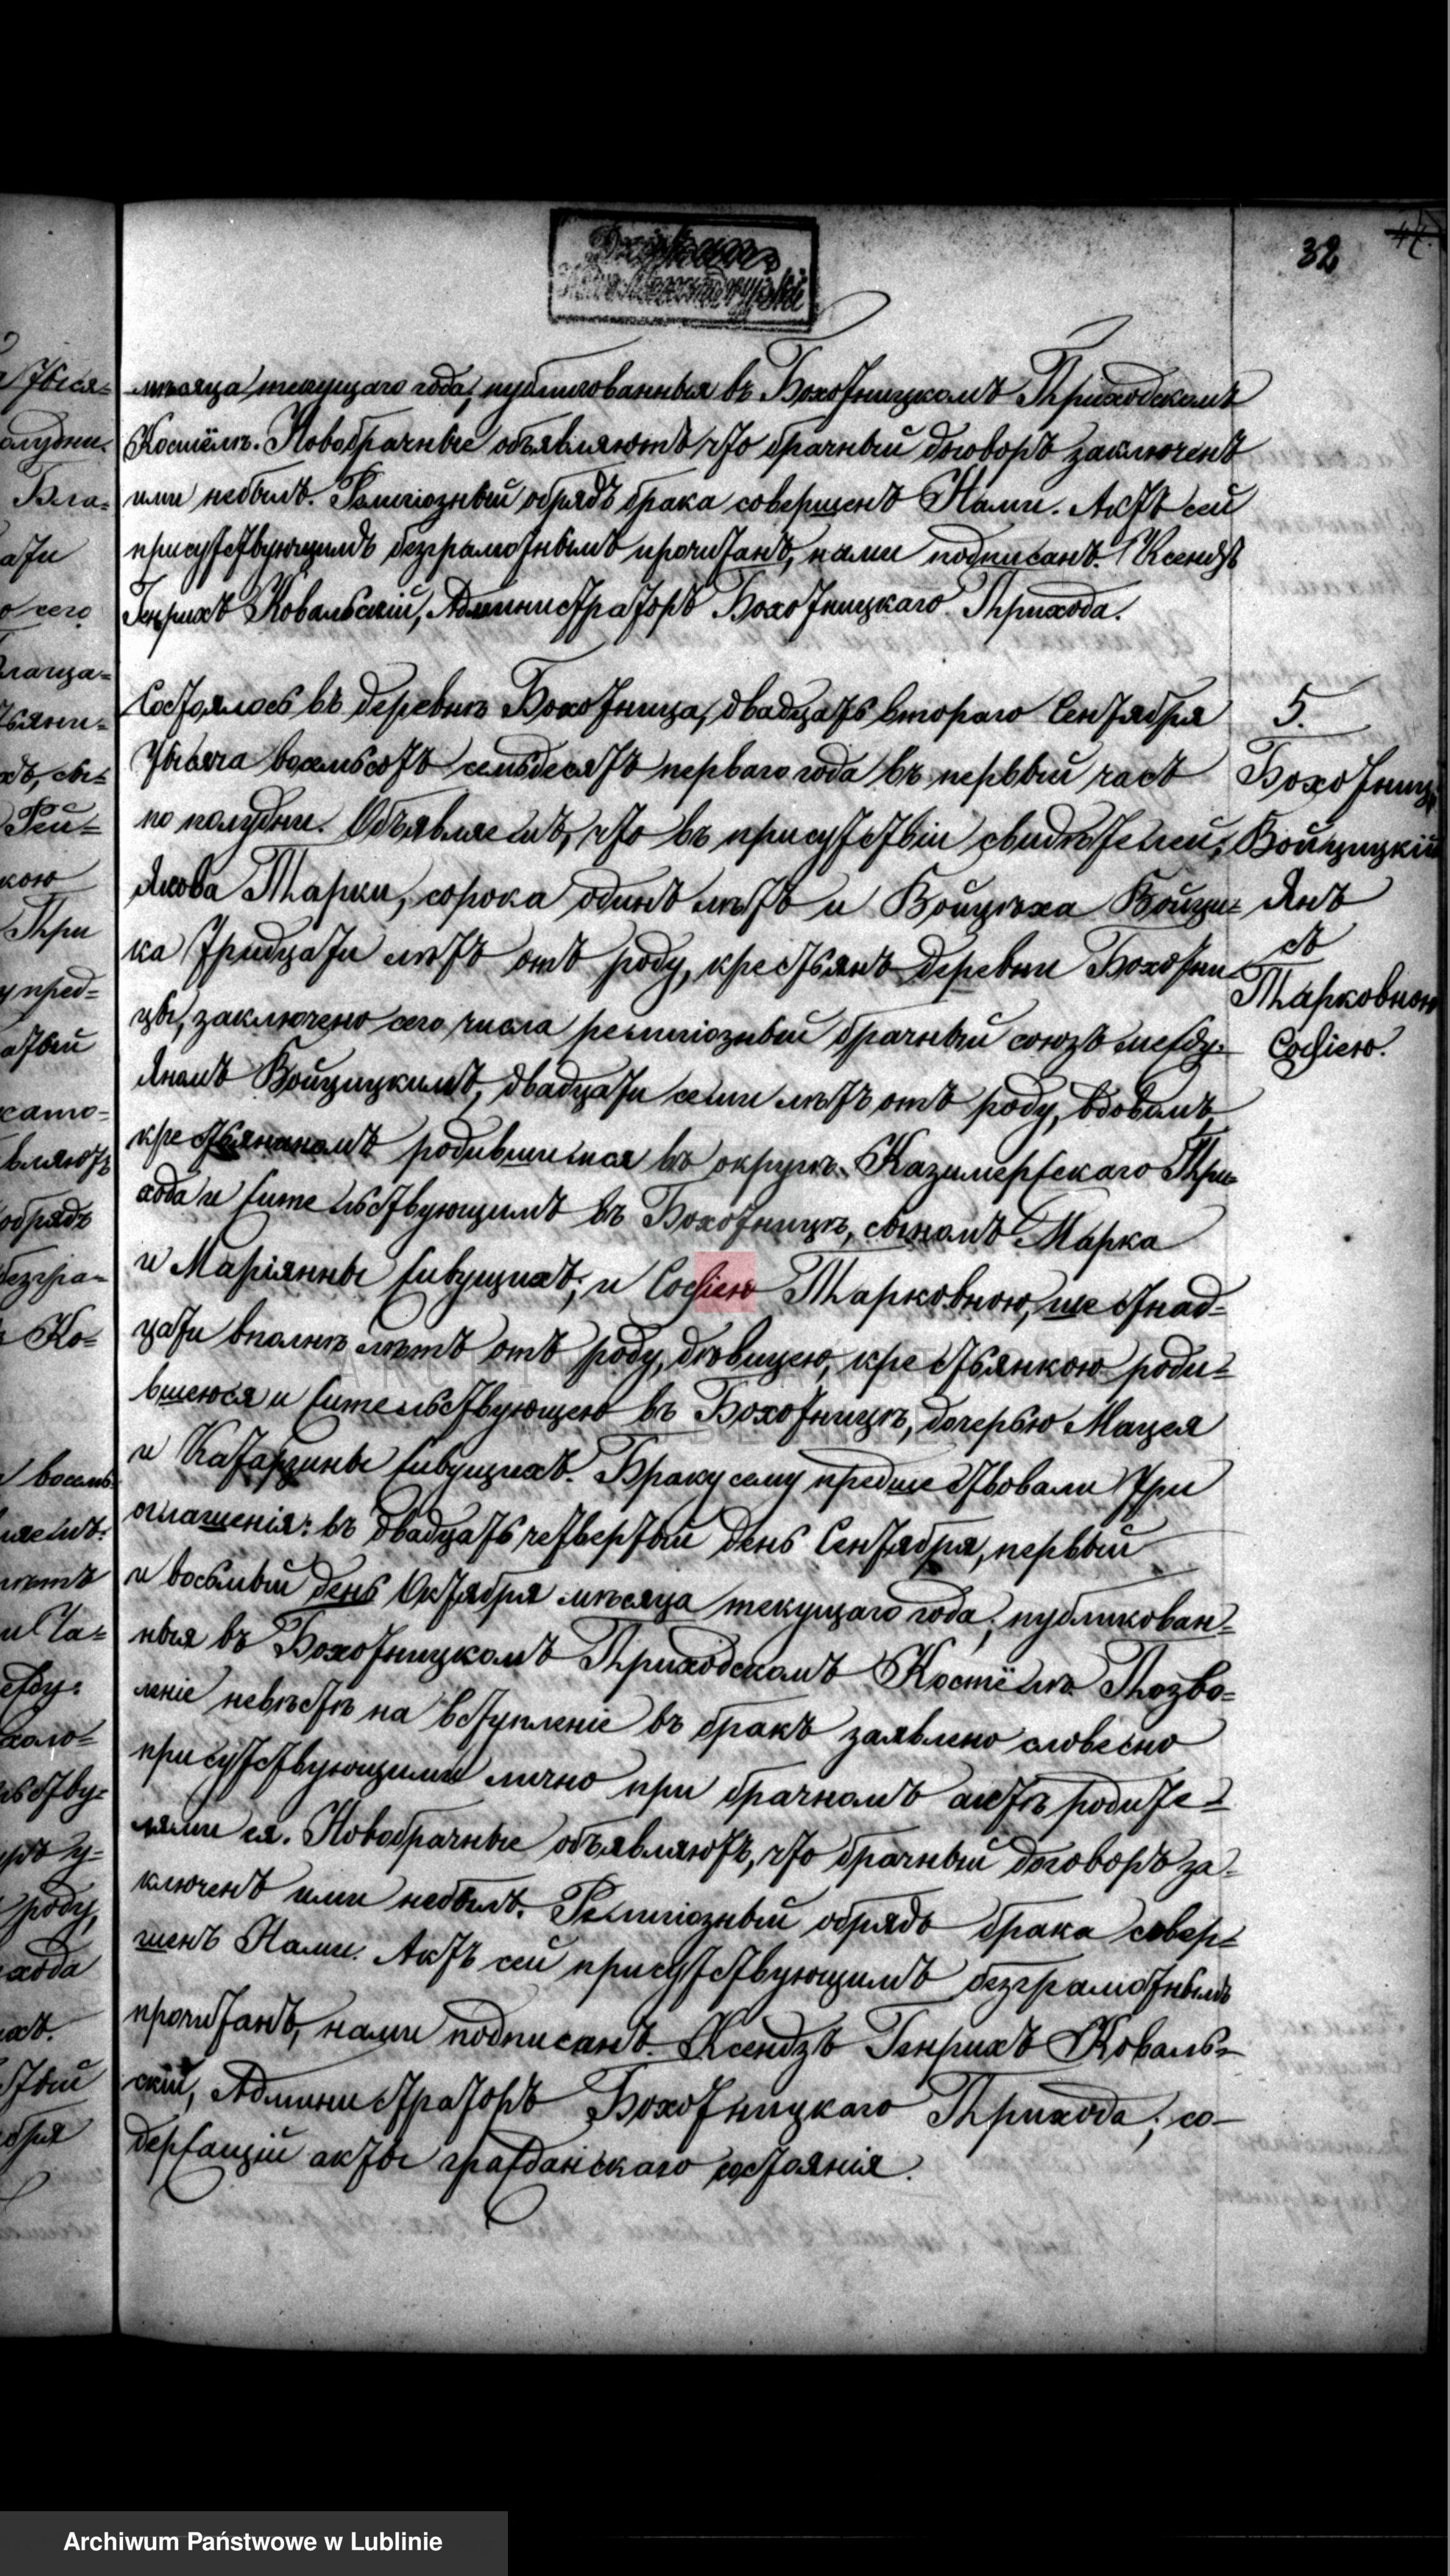 32
мѣсяца текущаго года, публикованныя въ Бохотницкомъ Приходскомъ
Костёлѣ. Новобрачные объявляютъ что брачный договоръ заключенъ
ими небылъ. Религіозный обрядъ брака совершенъ Нами. Актъ сей
присутствующимъ безграмотнымъ прочитанъ, нами подписанъ. Ксендзъ
Генрихъ Ковальскій, Администраторъ Бохотницкаго Прихода.
5.
Бохотниц
Войцицкій
Янъ
съ
Тарковною
Софіею.
Состоялось въ деревнѣ Бохотница, двадцать втораго Сентября
тысяча восемьсотъ семьдесятъ перваго года въ первый часъ
по полудни. Объявляемъ, что въ присутствіи свидѣтелей,
Якова Тарки, сорока одинъ лѣтъ и Войцѣха Войци=
ка тридцати лѣтъ отъ роду, крестьянъ деревни Бохотни
цы, заключено сего числа религіозный брачный союзъ между
Яномъ Войцицкимъ, двадцати семи лѣтъ отъ роду, вдовымъ
крестьяниномъ родившимся въ округѣ Казимержскаго При=
хода и жительствующимъ въ Бохотницѣ, сыномъ Марка
и Маріянны живущихъ; и Софіею Тарковною, шестнад=
цати вполнѣ лѣтъ отъ роду, дѣвицею, крестьянкою роди=
вшеюся и жительствующею въ Бохотницѣ, дочерью Мацея
и Катаржины живущихъ. Браку сему предшествовали три
оглашенія: въ двадцать четвертый день Сентября, первый
и восьмый день Октября мѣсяца текущаго года, публикован=
ныя въ Бохотницкомъ Приходскомъ Костёлѣ. Позво=
леніе невѣстѣ на вступленіе въ бракъ заявлено словесно
присутствующими лично при брачномъ актѣ родите=
лями ея. Новобрачные объявляютъ, что брачный договоръ за=
ключенъ ими небылъ. Религіозный обрядъ брака совер=
шенъ Нами. Актъ сей присутствующимъ безграмотнымъ
прочитанъ, нами подписанъ. Ксендзъ Генрихъ Коваль=
скій, Администраторъ Бохотницкаго Прихода, со=
держащій акты гражданскаго состоянія.
Archiwum Państwowe w Lublinie